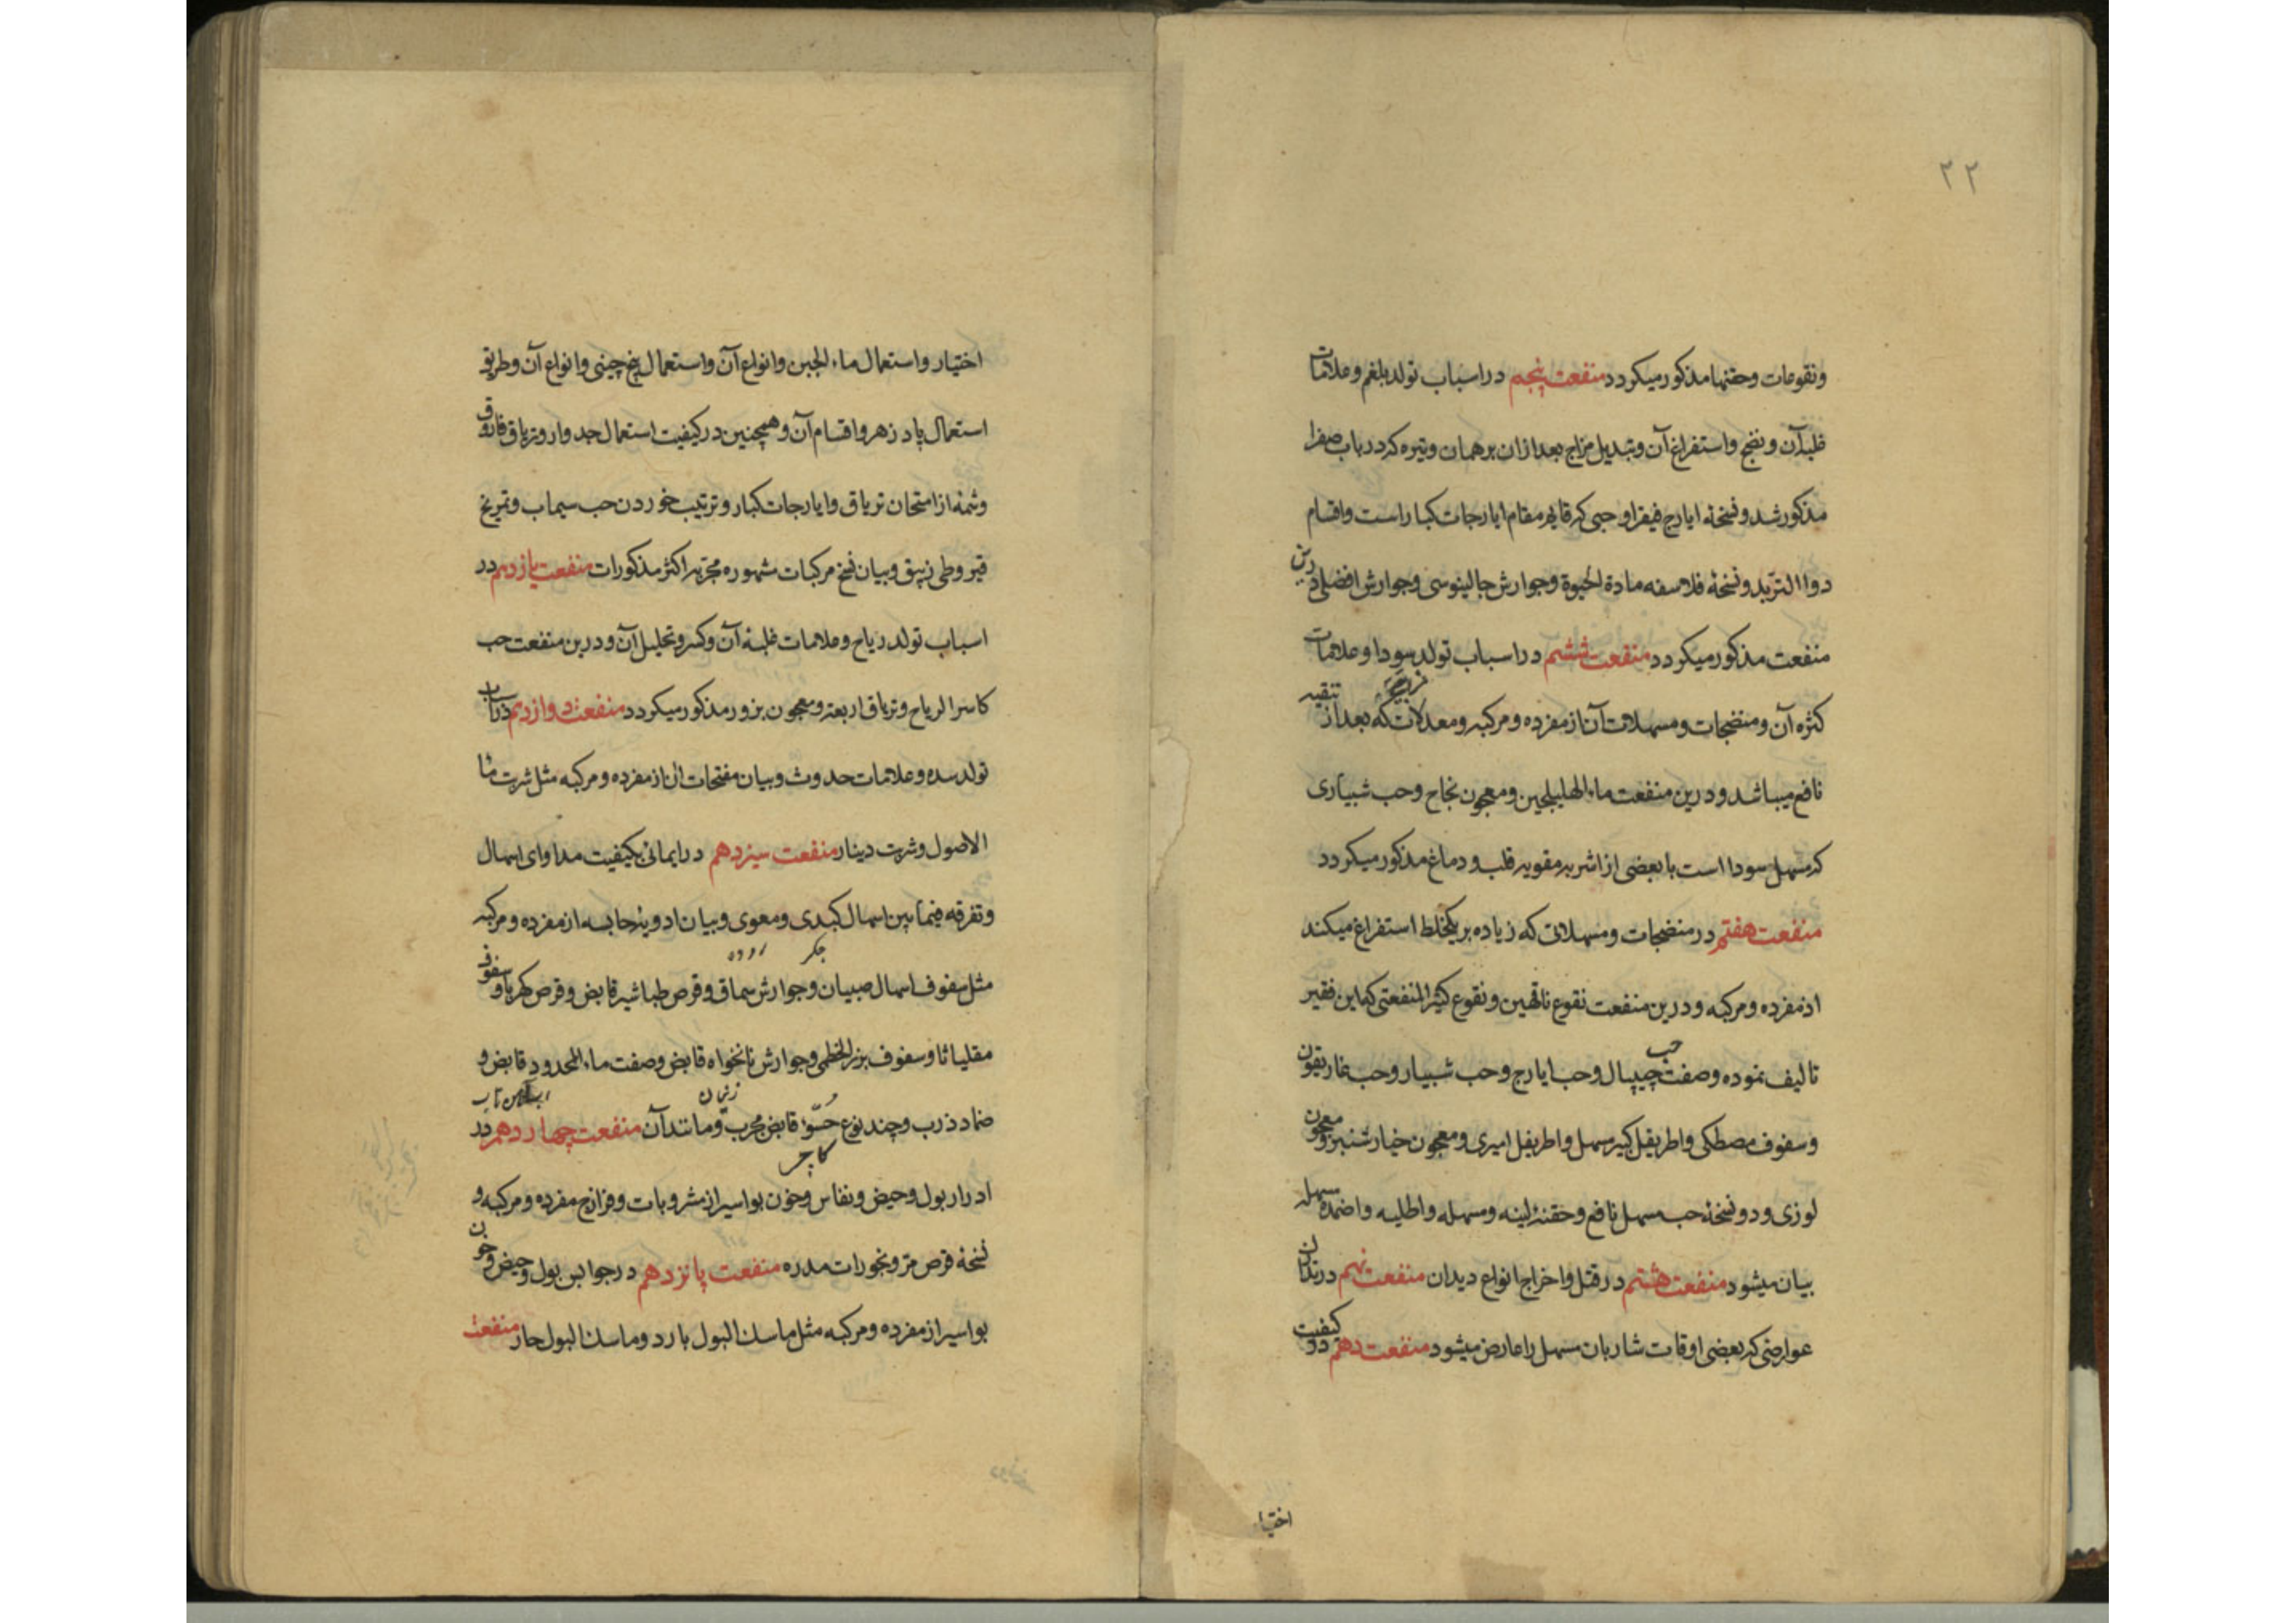 ۲۲
ونقوعات وحقنها مذکور میکردد منفعت پنجم در اسباب تولد بلغم وعلامات
غلبه آن ونضج واستفراغ آن وتبدیل مزاج بعد ازان برهمان وتیره که در باب صفرا
مذکور شد ونسخهٔ ایارج فیقرا وحبی که قایم مقام ایارجات کبار است واقسام
دوا التربد ونسخهٔ فلاسفه مادة الحیوة وجوارش جالینوسی وجوارش افضلی درین
منفعت مذکور میکردد منفعت ششم در اسباب تولد سودا وعلامات
کثره آن ومنضجات ومسهلات آن از مفرده ومرکبه ومعدلات که بعد از تنقیه
نافع میباشد ودرین منفعت ماء الهلیلجین ومعجون نجاح وحب شبیاری
که مسهل سودا است با بعضی از اشربه مقویه قلب ودماغ مذکور میکردد
منفعت هفتم در منضجات ومسهلاتی که زیاده بر یکخلط استفراغ میکند
از مفرده ومرکبه ودرین منفعت نقوع ناقهین ونقوع کثیر المنفعتی که این فقیر
تالیف نموده وصفت حب چیپال وحب ایارج وحب شبیار وحب غاریقون
وسفوف مصطکی واطریفل کبیر مسهل واطریفل امیری ومعجون خیارشنبر ومعجون
لوزی ودو نسخهٔ حب مسهل نافع وحقنهٔ لینه ومسهله واطلیه واضمدهٔ مسهله
بیان میشود منفعت هشتم در قتل واخراج انواع دیدان منفعت نهم در تدارک
عوارضی که بعضی اوقات شاربان مسهل را عارض میشود منفعت دهم در کیفیت
اختیا
اختیار واستعمال ماء الجبن وانواع آن واستعمال بیخ چینی وانواع آن وطریق
استعمال پادزهر واقسام آن وهمچنین در کیفیت استعمال جدوار وتریاق فاروق
وشمهٔ از امتحان تریاق وایارجات کبار وترتیب خوردن حب سیماب وتمریخ
قیروطی زیبق وبیان نسخ مرکبات مشهوره مجربه اکثر مذکورات منفعت یازدهم در
اسباب تولد ریاح وعلامات غلبه آن وکسر وتحلیل آن ودرین منفعت حب
کاسر الریاح وتریاق اربعه ومعجون بزور مذکور میکردد منفعت دوازدهم در اسباب
تولد سده وعلامات حدوث وبیان مفتحات آن از مفرده ومرکبه مثل شربت ماء
الاصول وشربت دینار منفعت سیزدهم در ایمائی بکیفیت مداوای اسهال
وتفرقه فیمابین اسهال کبدی ومعوی وبیان ادویهٔ حابسه از مفرده ومرکبه
جکر روده
مثل سفوف اسهال صبیان وجوارش سماق وقرص طباشیر قابض وقرص کهربا وسفوف
مقلیاثا وسفوف بزر الخطمی وجوارش نانخواه قابض وصفت ماء المحدود قابض و
ضماد ذرب وچند نوع حسوّ قابض مجرب ومانند آن منفعت چهاردهم در
ادرار بول وحیض ونفاس وخون بواسیر از مشروبات وفرازج مفرده ومرکبه و
نسخهٔ قرص مر وبخورات مدره منفعت پانزدهم در حوابس بول وحیض وخون
بواسیر از مفرده ومرکبه مثل ماسک البول بارد وماسک البول حار منفعت